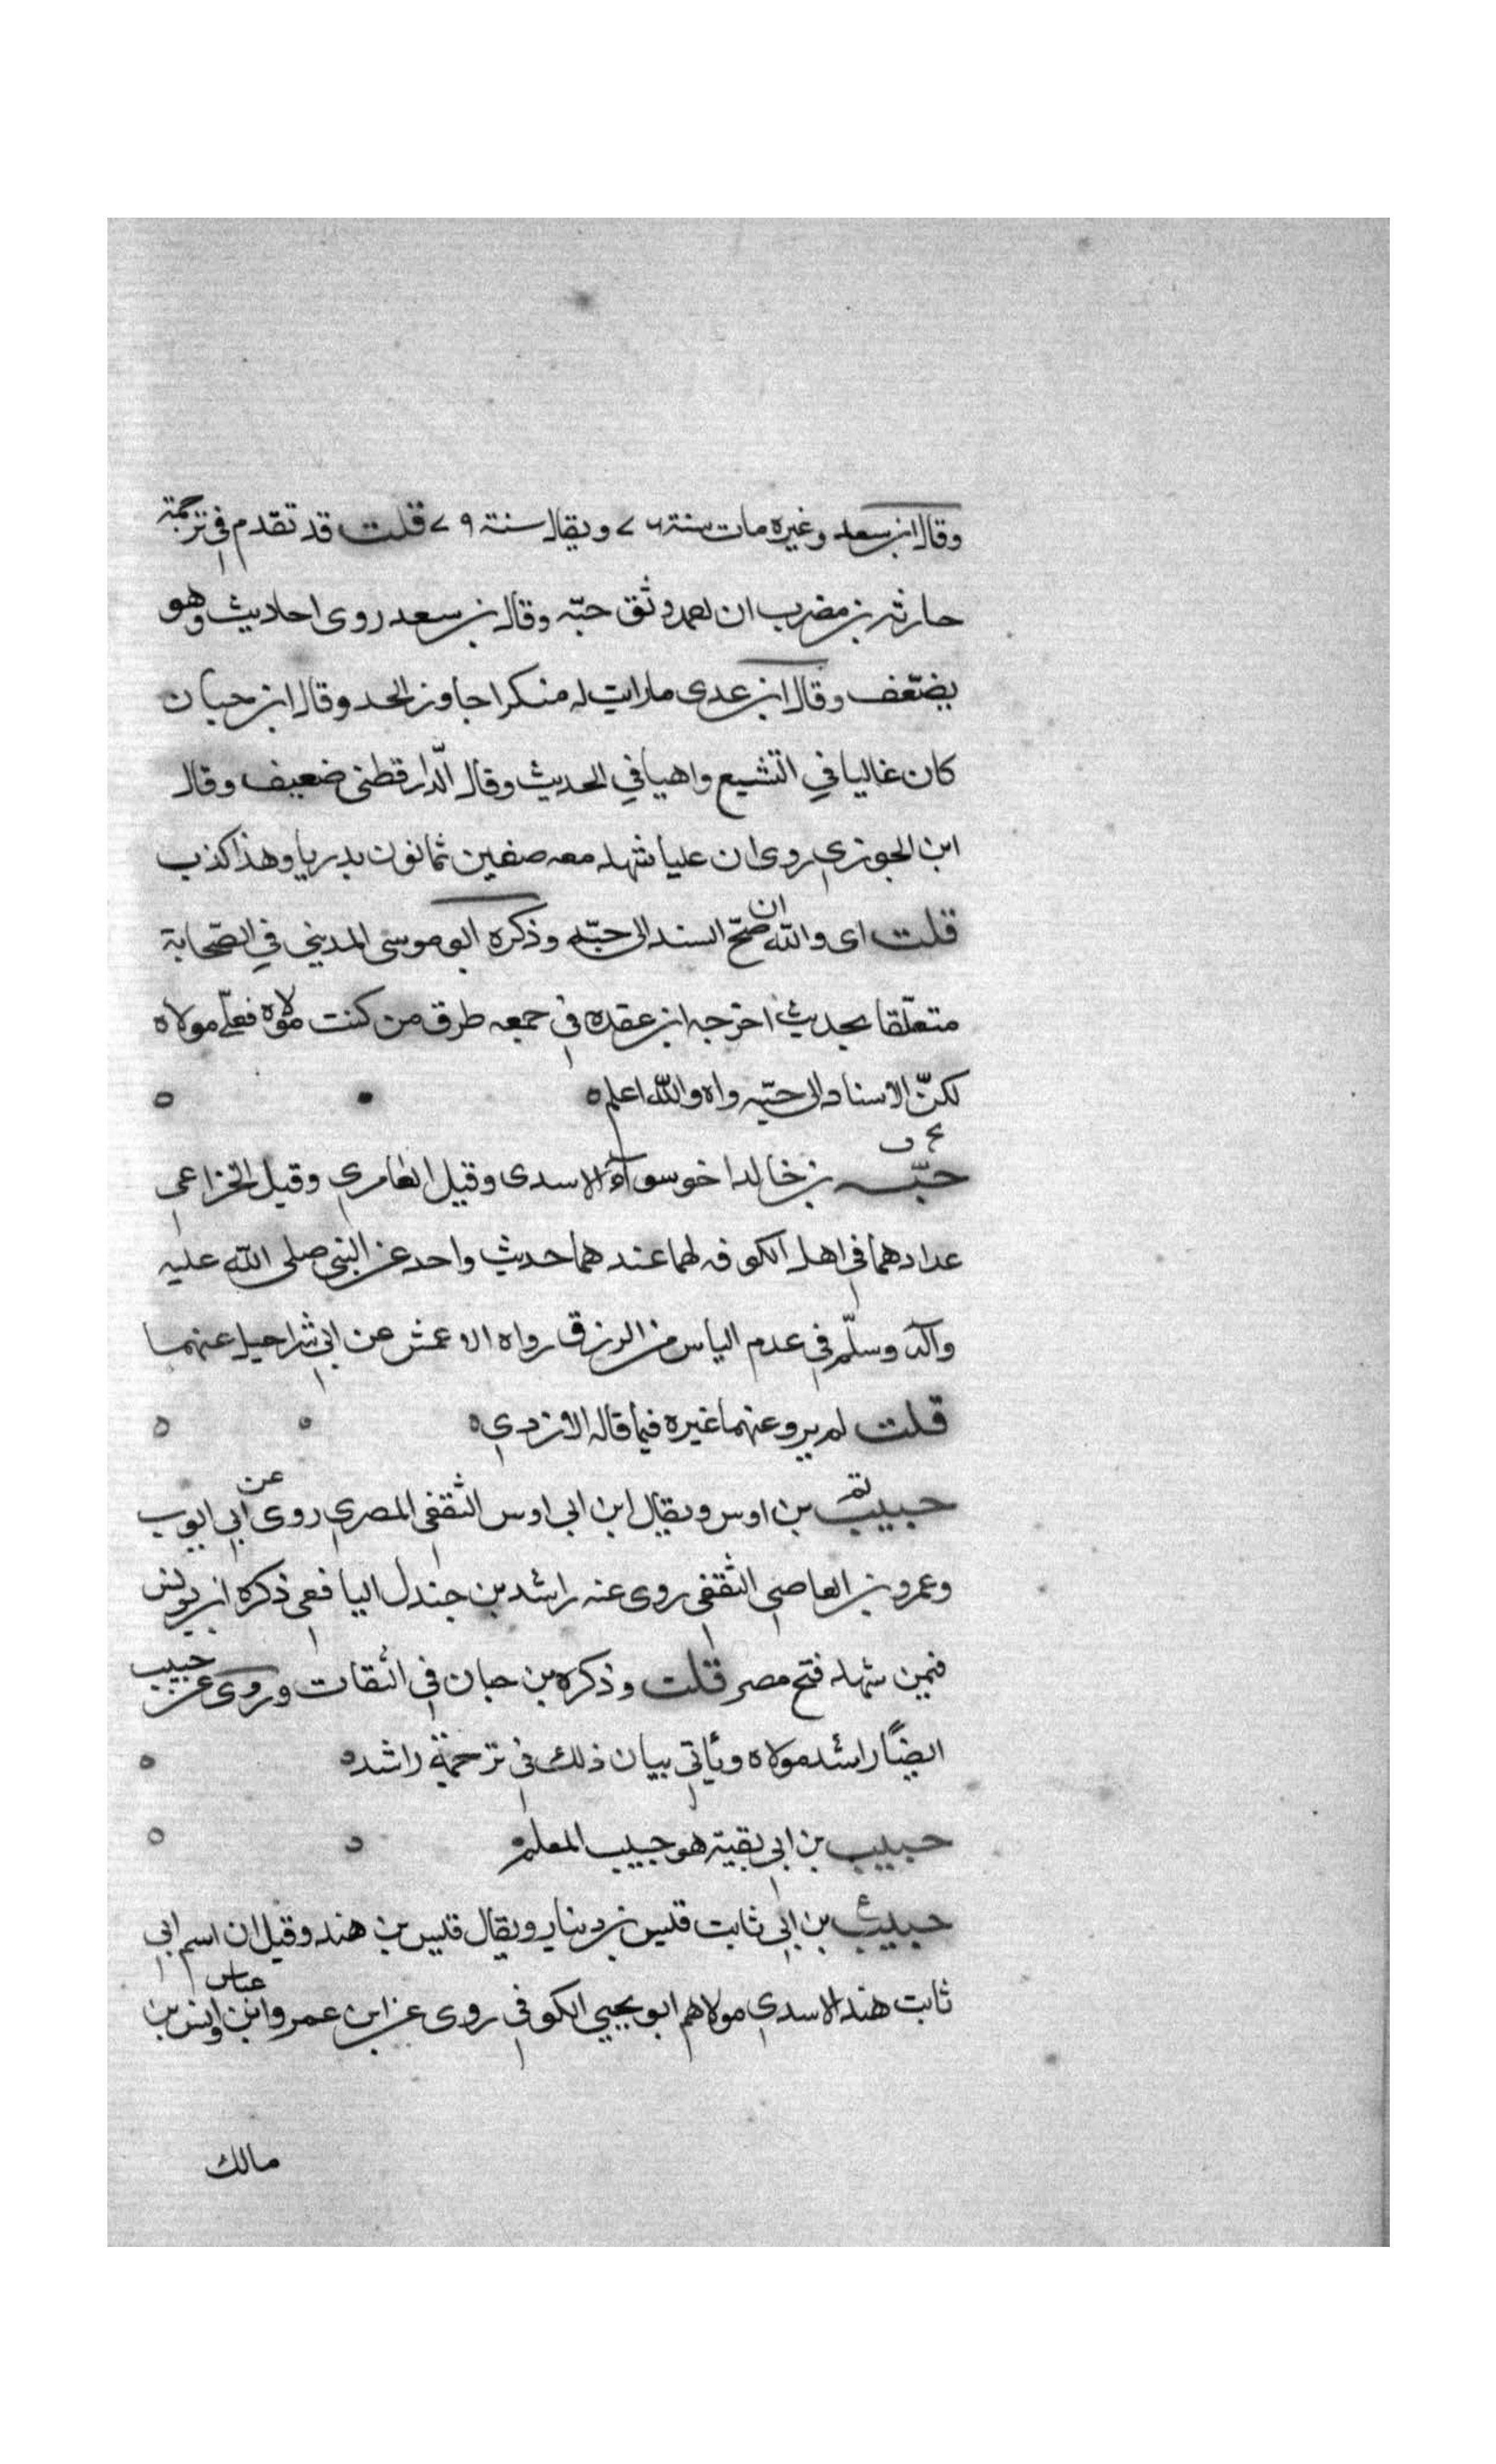 وقال ابن سعد وغيره مات سنة ٧٦ ويقال سنة ٧٩ قلت قد تقدم في ترجمة
حارثه بن مضرب ان احمد وثق حبّه وقال بن سعد روى احاديث وهو
يضعّف وقال ابن عدى مارايت له منكرا جاوز الحد وقال ابن حبان
كان غاليا في التشيع واهيا في الحديث وقال الّدارقطنى ضعيف وقال
ابن الجوزي روى ان عليا شهد معه صفين ثمانون بدريا وهذا كذب
قلت اى والله ان صحّ السند الى حبّه وذكره ابو موسى المديني في الصّحابة
متعلّقا بحديث اخرجه ابن عقده في جمعه طرق من كنت مولاه فعلّي مولاه
لكنّ الاسناد الى حبّه واه والله اعلم ه
بخ ق
حبّه بن خالد اخو سوآء الاسدى وقيل العامري وقيل الخزاعي
عدادهما في اهل الكوفه لهما عندهما حديث واحد عن النبى صلى الله عليه
وآله وسلّم في عدم الياس من الرزق رواه الاعمش عن ابي شراحيل عنهما
قلت لم يرو عنهما غيره فيما قاله الازدي ه
حبيب تم بن اوس ويقال ابن ابى اوس الثقفى المصري روى عن ابي ايوب
وعمرو بن العاصى الثقفى روى عنه راشد بن جندل اليافعى ذكره ابن يونس
فيمن شهد فتح مصر قلت وذكره بن حبان في الثقات وروى عن حبيب
ايضًا راشد مولاه وياتي بيان ذلك في ترجمة راشد ه
حبيب بن ابي بقية هو حبيب المعلم ه
حبيب ع بن ابي ثابت قيس بن دينار ويقال قيس بن هند وقيل ان اسم ابي
ثابت هند الاسدي مولاهم ابو يحيي الكوفي روى عن ابن عمر وابن عباس وانس بن
مالك